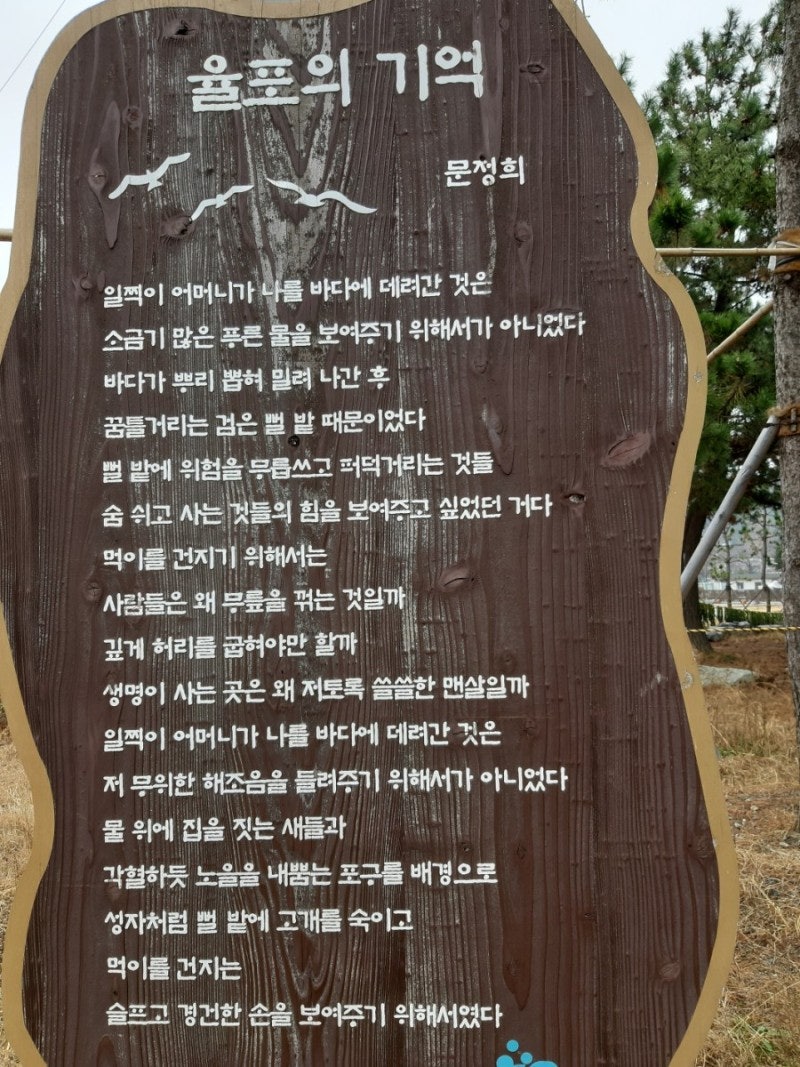 율포의 기억
문정희
일찍이 어머니가 나를 바다에 데려간 것은
소금기 많은 푸른 물을 보여주기 위해서가 아니었다
바다가 뿌리 뽑혀 밀려 나간 후
꿈틀거리는 검은 뻘 밭 때문이었다
뻘 밭에 위험을 무릅쓰고 퍼덕거리는 것들
숨 쉬고 사는 것들의 힘을 보여주고 싶었던 거다
먹이를 건지기 위해서는
사람들은 왜 무릎을 꺾는 것일까
깊게 허리를 굽혀야만 할까
생명이 사는 곳은 왜 저토록 쓸쓸한 맨살일까
일찍이 어머니가 나를 바다에 데려간 것은
저 무위한 해조음을 들려주기 위해서가 아니었다
물 위에 집을 짓는 새들과
각혈하듯 노을을 내뿜는 포구를 배경으로
성자처럼 뻘 밭에 고개를 숙이고
먹이를 건지는
슬프고 경건한 손을 보여주기 위해서였다